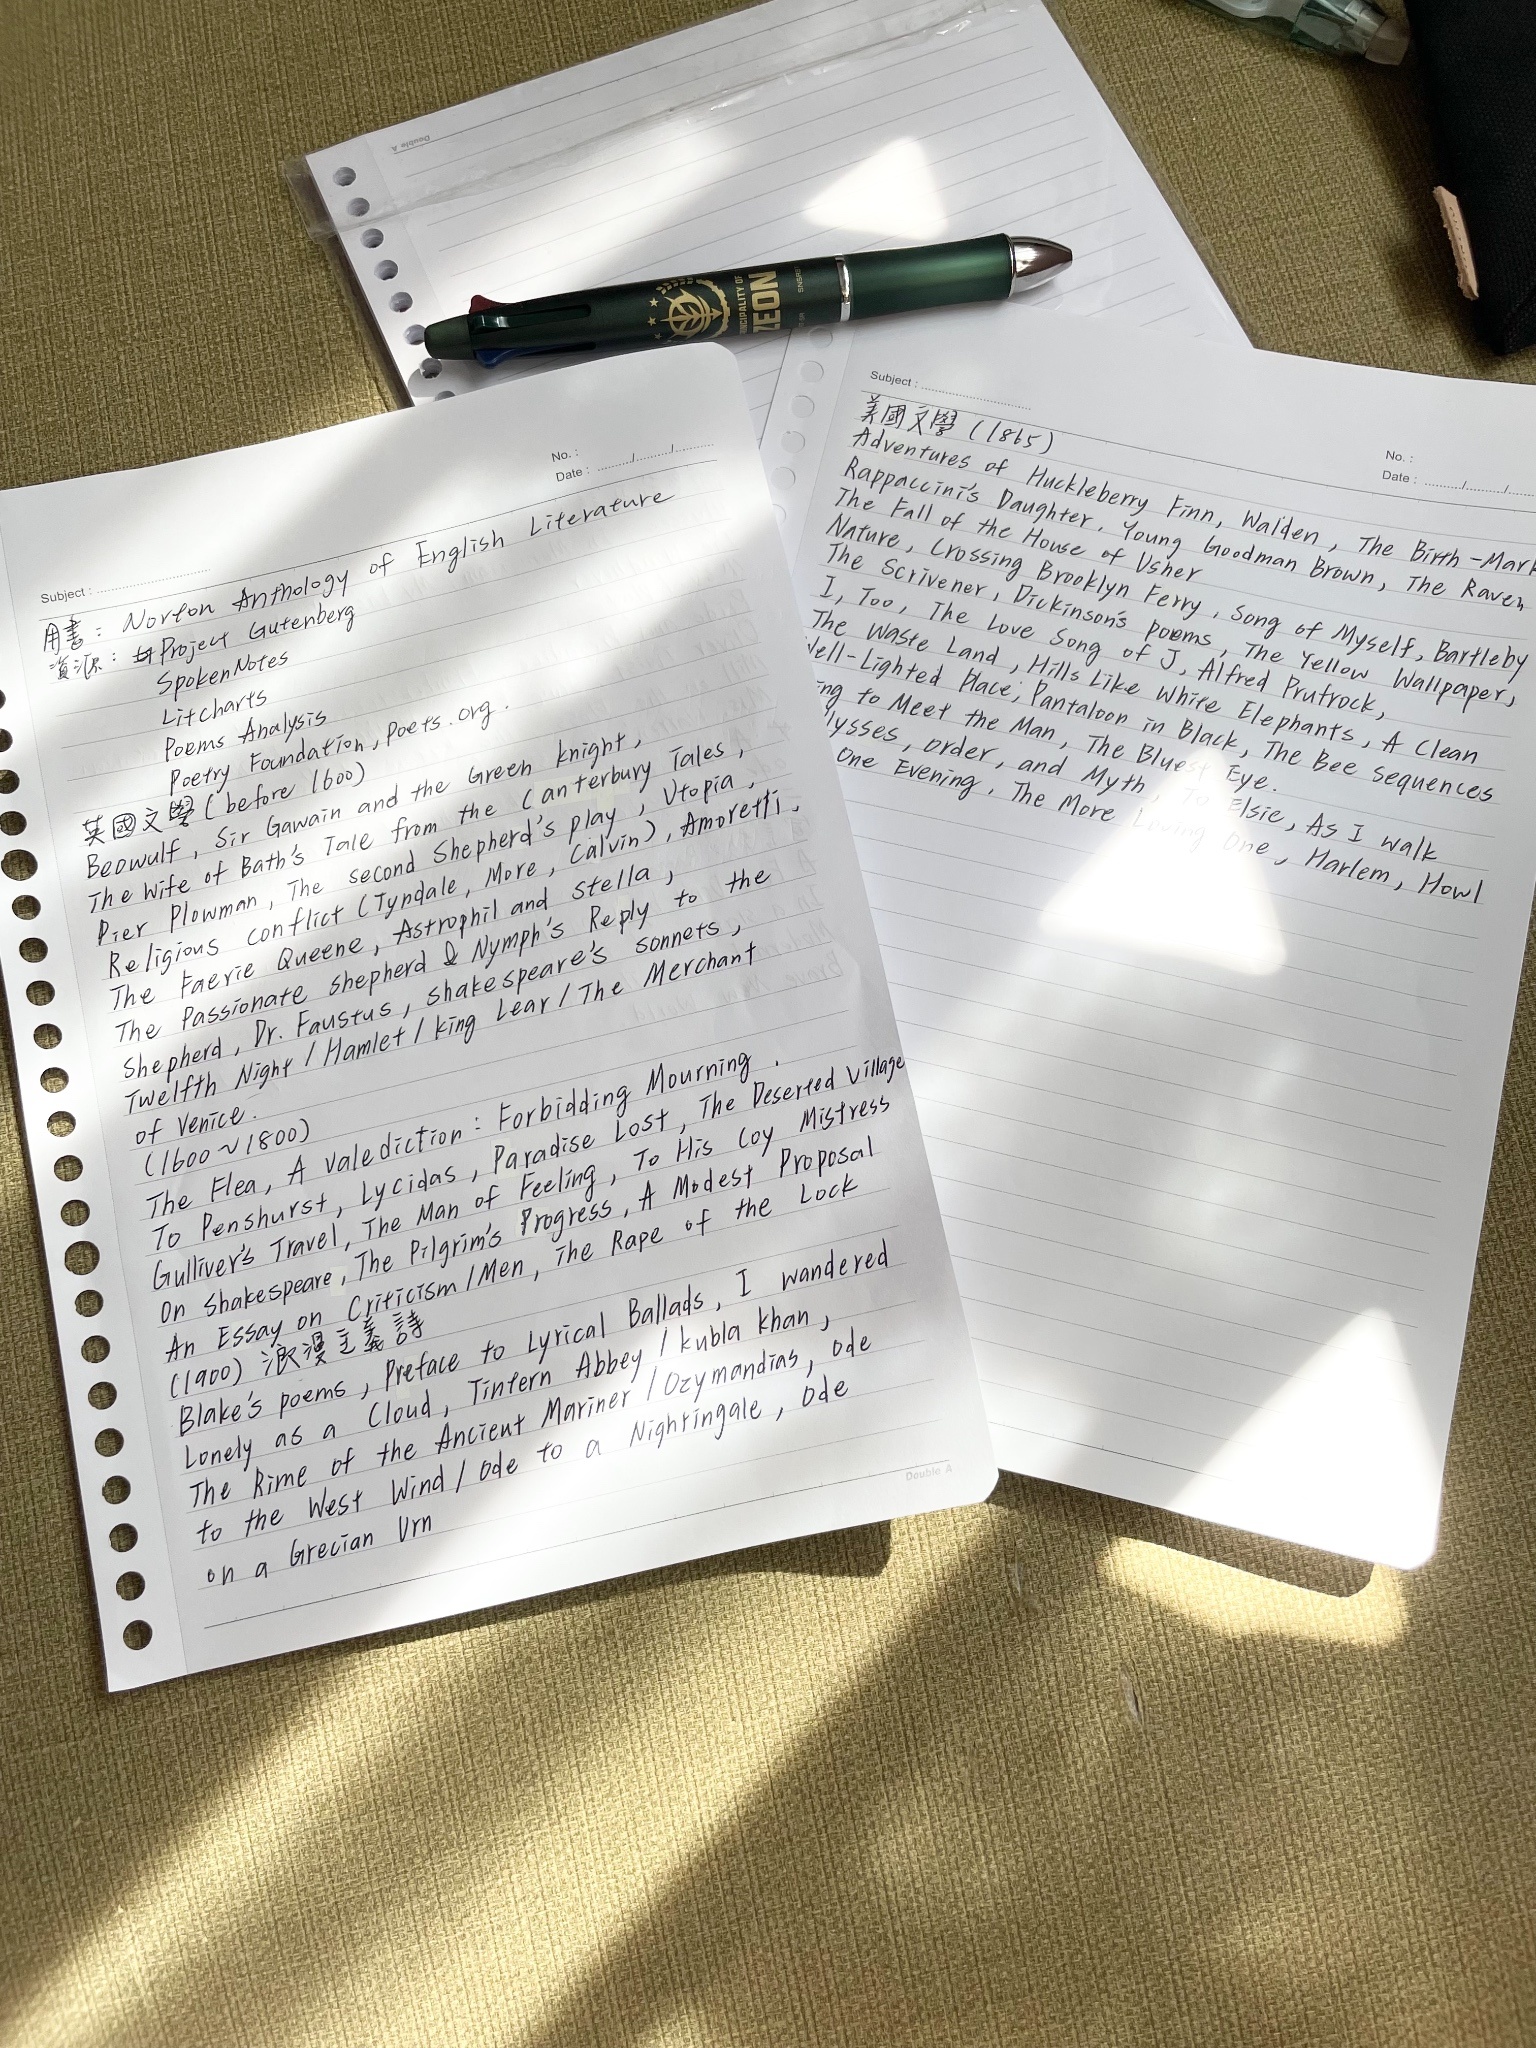 Double A
PRINCIPALITY OF
ZEON
No. :
Date : ......../......../........
Subject : ........................
用書: Norton Anthology of English Literature
資源: Project Gutenberg
SpokenNotes
Litcharts
Poems Analysis
Poetry Foundation, poets.org.
英國文學(before 1600)
Beowulf, Sir Gawain and the Green knight,
The Wife of Bath's Tale from the Canterbury Tales,
Pier Plowman, The second Shepherd's play, Utopia,
Religious conflict (Tyndale, More, Calvin), Amoretti,
The Faerie Queene, Astrophil and Stella,
The Passionate Shepherd & Nymph's Reply to the
Shepherd, Dr. Faustus, Shakespeare's sonnets,
Twelfth Night / Hamlet / king Lear / The Merchant
of Venice.
(1600~1800)
The Flea, A valediction: Forbidding Mourning.
To Penshurst, Lycidas, Paradise Lost, The Deserted Village
Gulliver's Travel, The Man of Feeling, To His Coy Mistress
On Shakespeare, The Pilgrim's Progress, A Modest Proposal
An Essay on Criticism / Men, The Rape of the Lock
(1900) 浪漫主義詩
Blake's poems, Preface to Lyrical Ballads, I wandered
Lonely as a Cloud, Tintern Abbey / kubla khan,
The Rime of the Ancient Mariner / Ozymandias, Ode
to the West Wind / Ode to a Nightingale, Ode
on a Grecian Urn
Double A
Subject : ........................
No. :
Date : ......../......../........
美國文學 (1865)
Adventures of Huckleberry Finn, Walden, The Birth-Mark
Rappaccini's Daughter, Young Goodman Brown, The Raven
The Fall of the House of Usher
Nature, Crossing Brooklyn Ferry, Song of Myself, Bartleby
The Scrivener, Dickinson's poems, The Yellow Wallpaper,
I, Too, The Love Song of J, Alfred Prufrock,
The Waste Land, Hills Like White Elephants, A Clean
Well-Lighted Place, Pantaloon in Black, The Bee sequences
ing to Meet the Man, The Bluest Eye.
lysses, order, and Myth, To Elsie, As I walk
One Evening, The More Loving One, Harlem, Howl